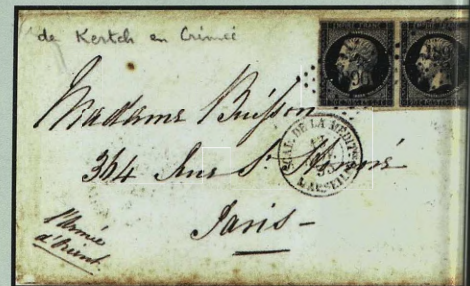 de Kertch en Crimée
Madame Buisson
364 Rue St Honoré
Paris
l'Armée
d'Orient.
DE LA MÉDIT
MARSEIL